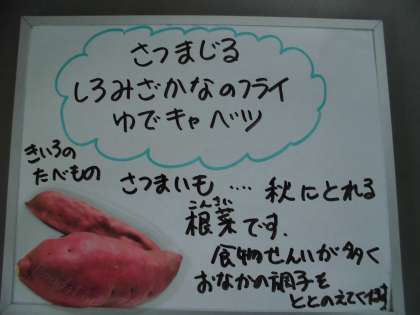 さつまじる
しろみざかなのフライ
ゆでキャベツ
きいろの
たべもの
さつまいも…秋にとれる
こんさい
根菜です.
食物せんいが多く
おなかの調子を
ととのえてくれます